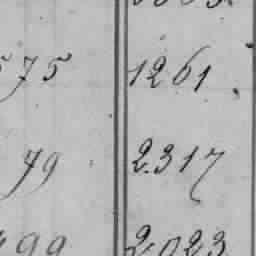 575 1261
79 2317
99 2023